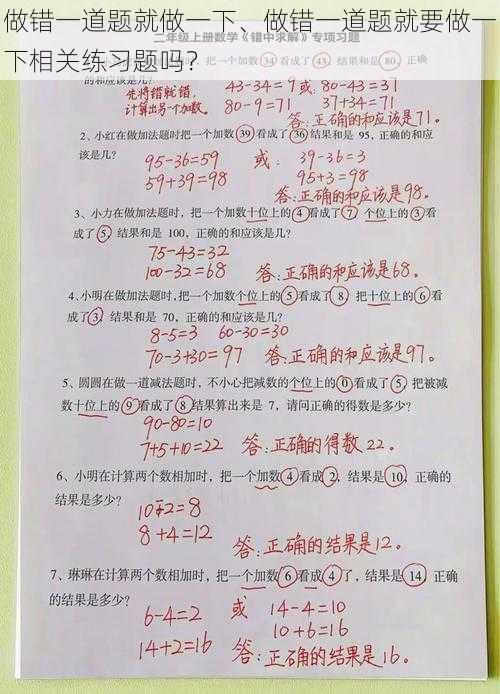 做错一道题就做一下、做错一道题就要做一
下相关练习题吗？
二年级上册数学《错中求解》专项习题
的和应该是几？
先将错就错，
计算出另一个加数。
43-34=9或80-43=37
80-9=71 37+34=71
答：正确的和应该是71。
2、小红在做加法题时把一个加数39看成了36结果和是 95，正确的和应
该是几？
95-36=59 或： 39-36=3
59+39=98 95+3=98
答：正确的和应该是98。
3、小力在做加法题时，把一个加数十位上的4看成了7 个位上的3看
成了5，结果和是 100，正确的和应该是几？
75-43=32
100-32=68 答：正确的和应该是68。
4、小明在做加法题时，把一个加数个位上的5看成了8 把十位上的6看
成了3，结果和是 70，正确的和应该是几？
8-5=3 60-30=30
70-3+30=97 答：正确的和应该是97。
5、圆圆在做一道减法题时，不小心把减数的个位上的0看成了5，把被减
数十位上的9看成了8结果算出来是 7，请问正确的得数是多少？
90-80=10
7+5+10=22 答：正确的得数22。
6、小明在计算两个数相加时，把一个加数4看成2，结果是10，正确的
结果是多少？
10+2=8
8+4=12
答：正确的结果是12。
7、琳琳在计算两个数相加时，把一个加数6看成4了，结果是14，正确
的结果是多少？
6-4=2 或 14-4=10
14+2=16 10+6=16
答：正确的结果是16。